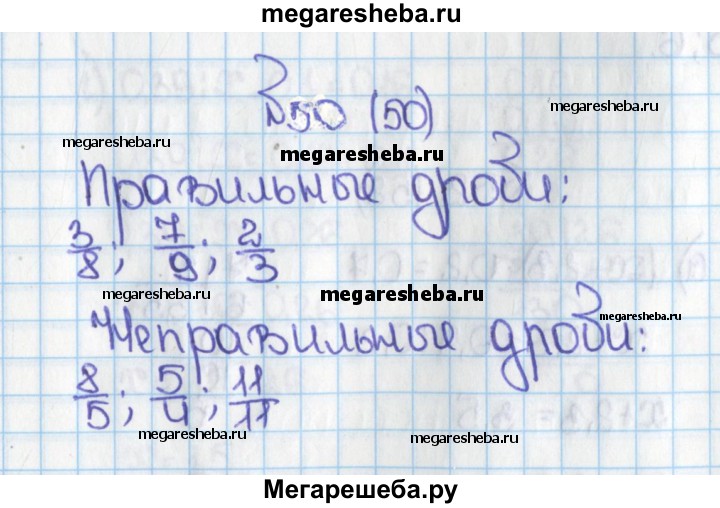 megaresheba.ru
№50 (50)
megaresheba.ru
megaresheba.ru
megaresheba.ru
Правильные дроби:
3/8; 7/9; 2/3
megaresheba.ru
megaresheba.ru
megaresheba.ru
Неправильные дроби:
8/5; 5/4; 11/11
megaresheba.ru
megaresheba.ru
Мегарешеба.ру